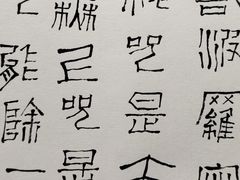 波羅蜜
咒是大
無上咒是
能除一